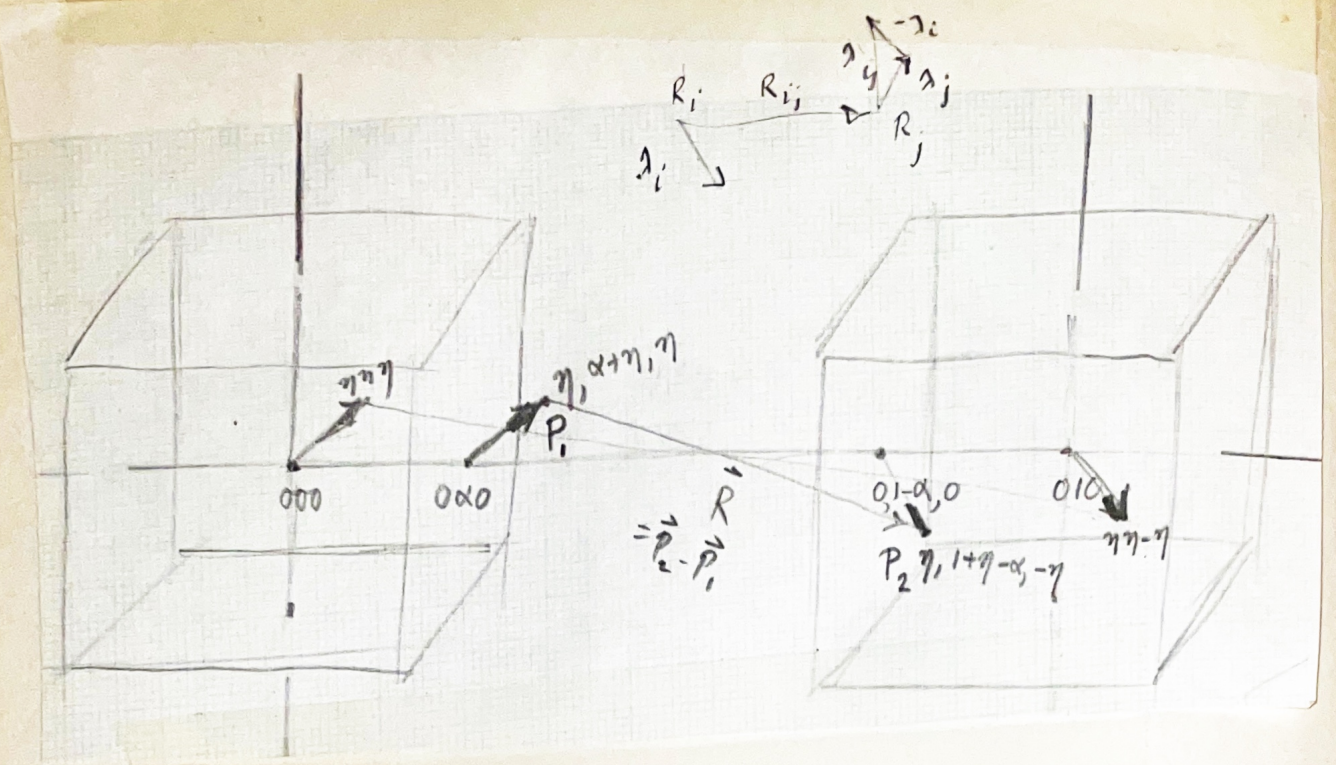 -λi
λij
λj
Ri
Rij
Rj
λi
ηηη
η, α+η, η
P1
000
0α0
R
= P2 - P1
0,1-α,0
010
P2 η, 1+η-α, -η
ηη-η